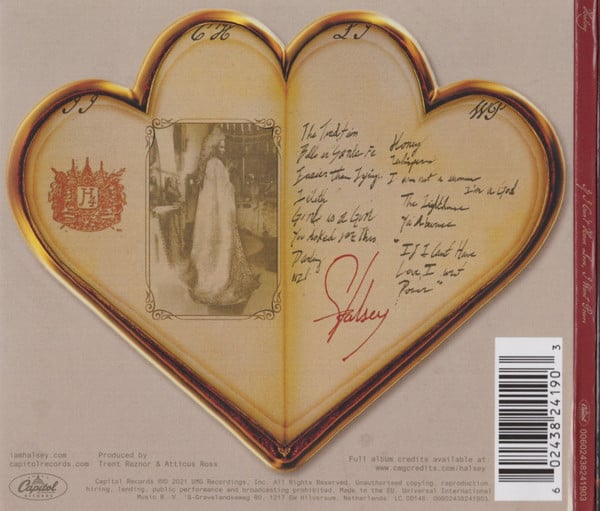 J J
C H
L J
WP
H4
The Tradition
Bells in Santa Fe
Easier Than Lying
Lilith
Girl is a Gun
You Asked For This
Darling
1121
Honey
Whispers
I am not a woman
I'm a God
The Lighthouse
Ya'aburnee
"If I Can't Have
Love, I want
Power"
Halsey
iamhalsey.com
capitolrecords.com
Produced by
Trent Reznor & Atticus Ross
Full album credits available at:
www.cmgcredits.com/halsey
Capitol
RECORDS
Capitol Records ℗© 2021 UMG Recordings, Inc. All Rights Reserved. Unauthorised copying, reproduction,
hiring, lending, public performance and broadcasting prohibited. Made in the EU. Universal International
Music B.V. 's-Gravelandseweg 80, 1217 EW Hilversum, Netherlands LC 00148. 00602438241903
6 02438 24190 3
Halsey
If I Can't Have Love, I Want Power
Capitol
00602438241903